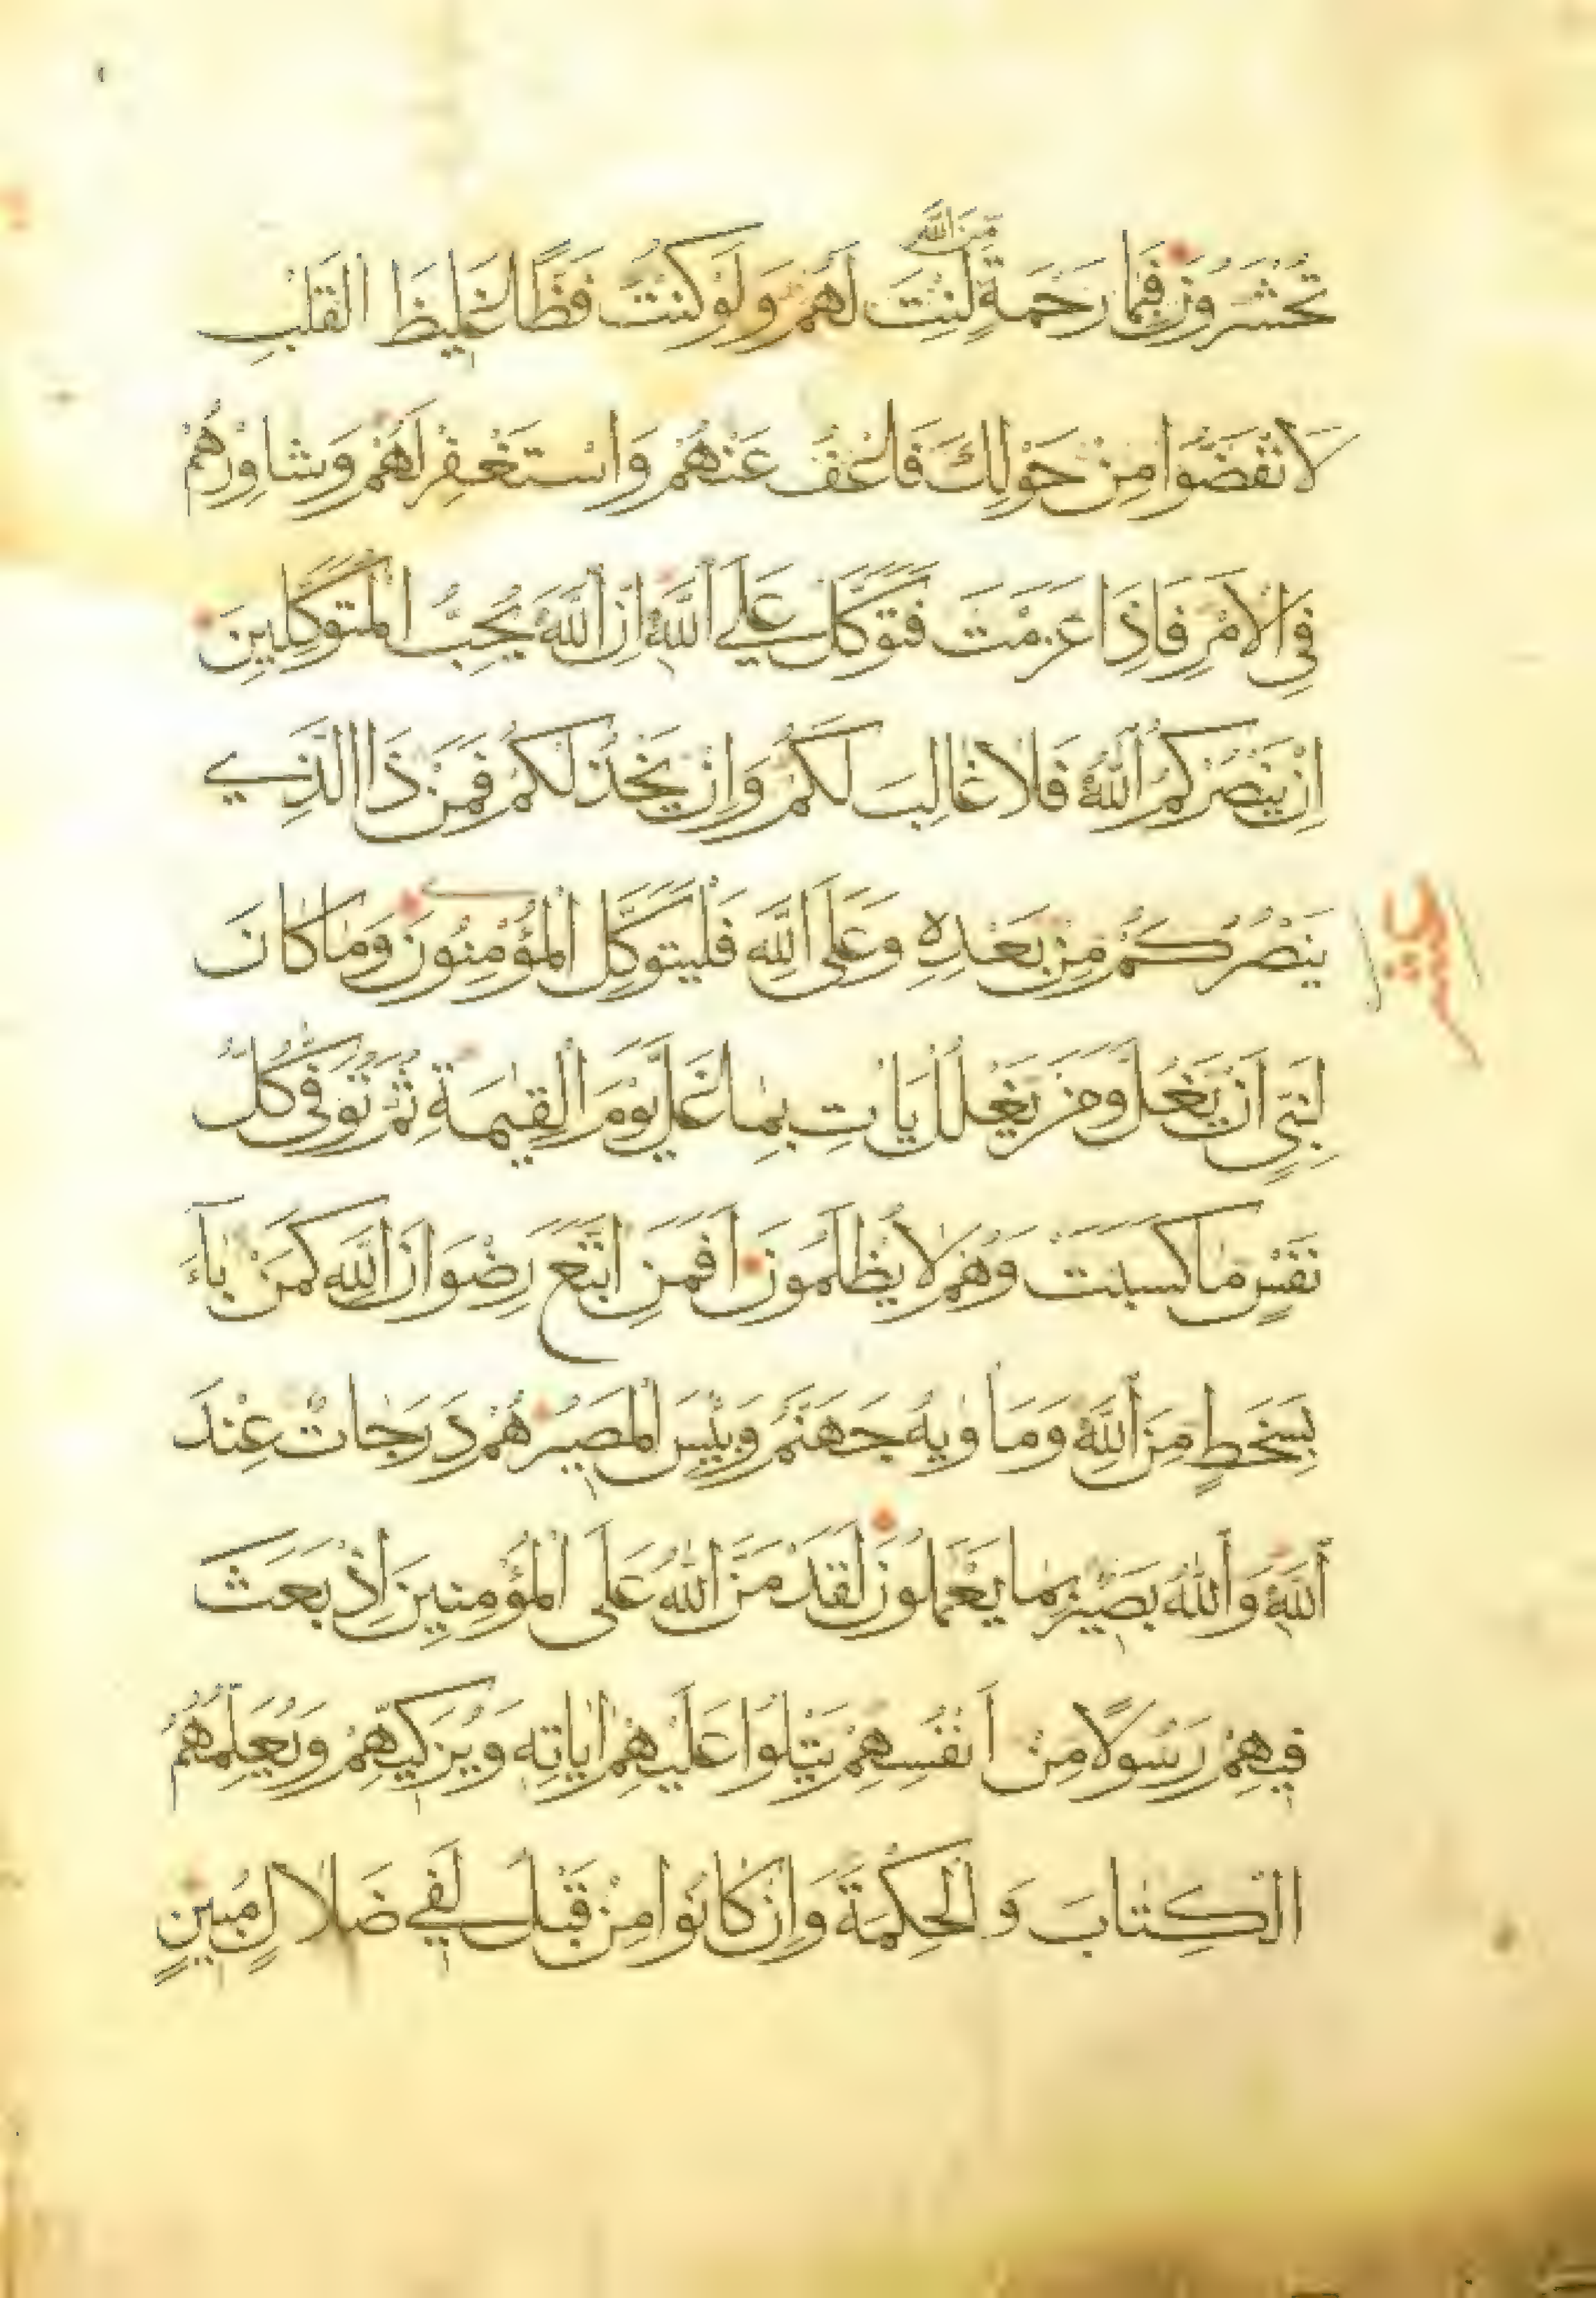 مِّنَ اللَّهِ
تُحْشَرُونَ فَبِمَا رَحْمَةٍ لِنْتَ لَهُمْ وَلَوْ كُنْتَ فَظًّا غَلِيظَ الْقَلْبِ
لَانْفَضُّوا مِنْ حَوْلِكَ فَاعْفُ عَنْهُمْ وَاسْتَغْفِرْ لَهُمْ وَشَاوِرْهُمْ
فِي الْأَمْرِ فَإِذَا عَزَمْتَ فَتَوَكَّلْ عَلَى اللَّهِ إِنَّ اللَّهَ يُحِبُّ الْمُتَوَكِّلِينَ
إِنْ يَنْصُرْكُمُ اللَّهُ فَلَا غَالِبَ لَكُمْ وَإِنْ يَخْذُلْكُمْ فَمَنْ ذَا الَّذِي
يَنْصُرُكُمْ مِنْ بَعْدِهِ وَعَلَى اللَّهِ فَلْيَتَوَكَّلِ الْمُؤْمِنُونَ وَمَا كَانَ
لِنَبِيٍّ أَنْ يَغُلَّ وَمَنْ يَغْلُلْ يَأْتِ بِمَا غَلَّ يَوْمَ الْقِيٰمَةِ ثُمَّ تُوَفّٰى كُلُّ
نَفْسٍ مَا كَسَبَتْ وَهُمْ لَا يُظْلَمُونَ أَفَمَنِ اتَّبَعَ رِضْوَانَ اللَّهِ كَمَنْ بَآءَ
بِسَخَطٍ مِنَ اللَّهِ وَمَأْوٰيهُ جَهَنَّمُ وَبِئْسَ الْمَصِيرُ هُمْ دَرَجَاتٌ عِنْدَ
اللَّهِ وَاللَّهُ بَصِيرٌ بِمَا يَعْمَلُونَ لَقَدْ مَنَّ اللَّهُ عَلَى الْمُؤْمِنِينَ إِذْ بَعَثَ
فِيهِمْ رَسُولًا مِنْ أَنْفُسِهِمْ يَتْلُوا عَلَيْهِمْ اٰيَاتِهِ وَيُزَكِّيهِمْ وَيُعَلِّمُهُمُ
الْكِتَابَ وَالْحِكْمَةَ وَإِنْ كَانُوا مِنْ قَبْلُ لَفِي ضَلَالٍ مُبِينٍ